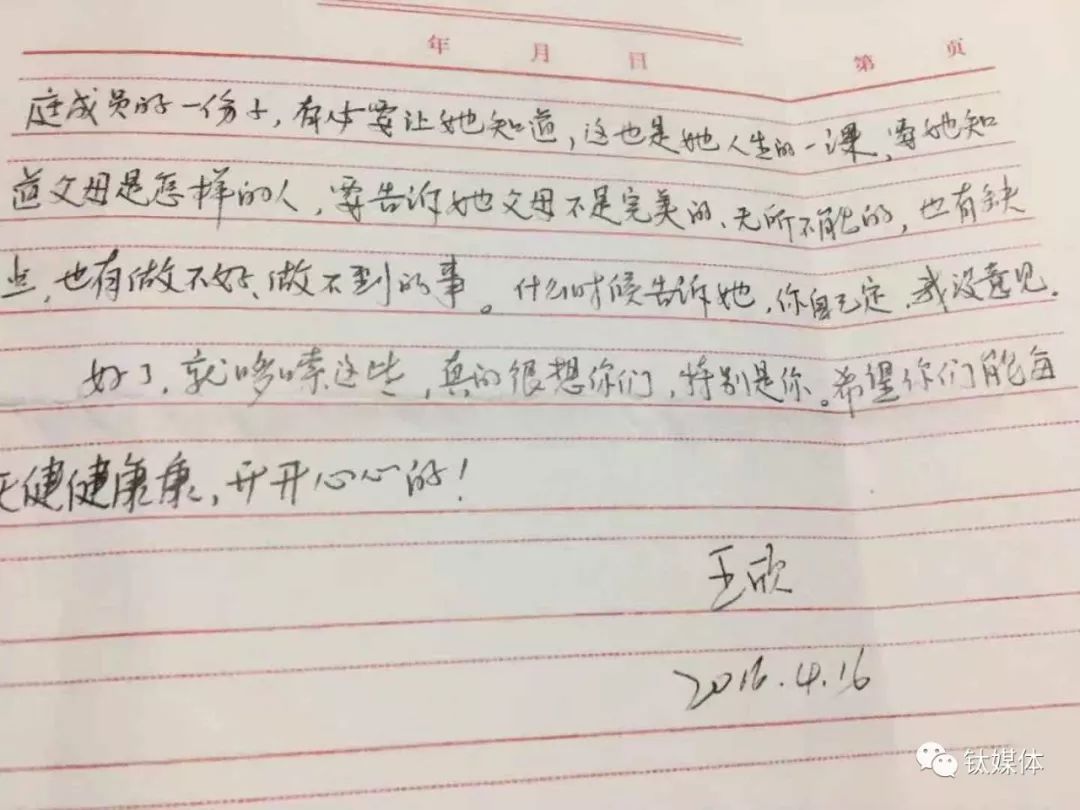 年 月 日 第 页
庭成员的一份子，有必要让她知道，这也是她人生的一课，要她知
道父母是怎样的人，要告诉她父母不是完美的、无所不能的，也有缺
点，也有做不好、做不到的事。什么时候告诉她，你自己定，我没意见。
好了，就啰嗦这些，真的很想你们，特别是你。希望你们能每
天健健康康，开开心心的！
王欣
2016.4.16
钛媒体